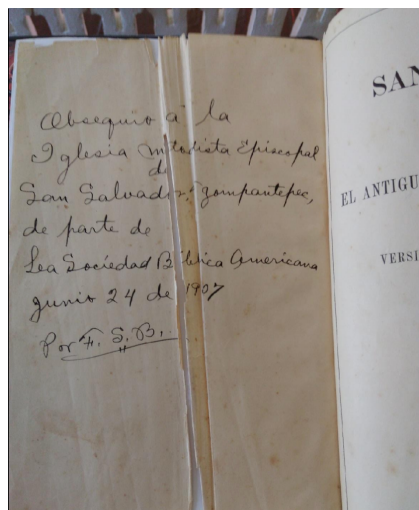 Obsequio á la
Iglesia Metodista Episcopal
de
San Salvador Tzompantepec,
de parte de
La Sociedad Bíblica Americana
Junio 24 de 1907
Por F. S. B.
SAN
EL ANTIGU
VERSI